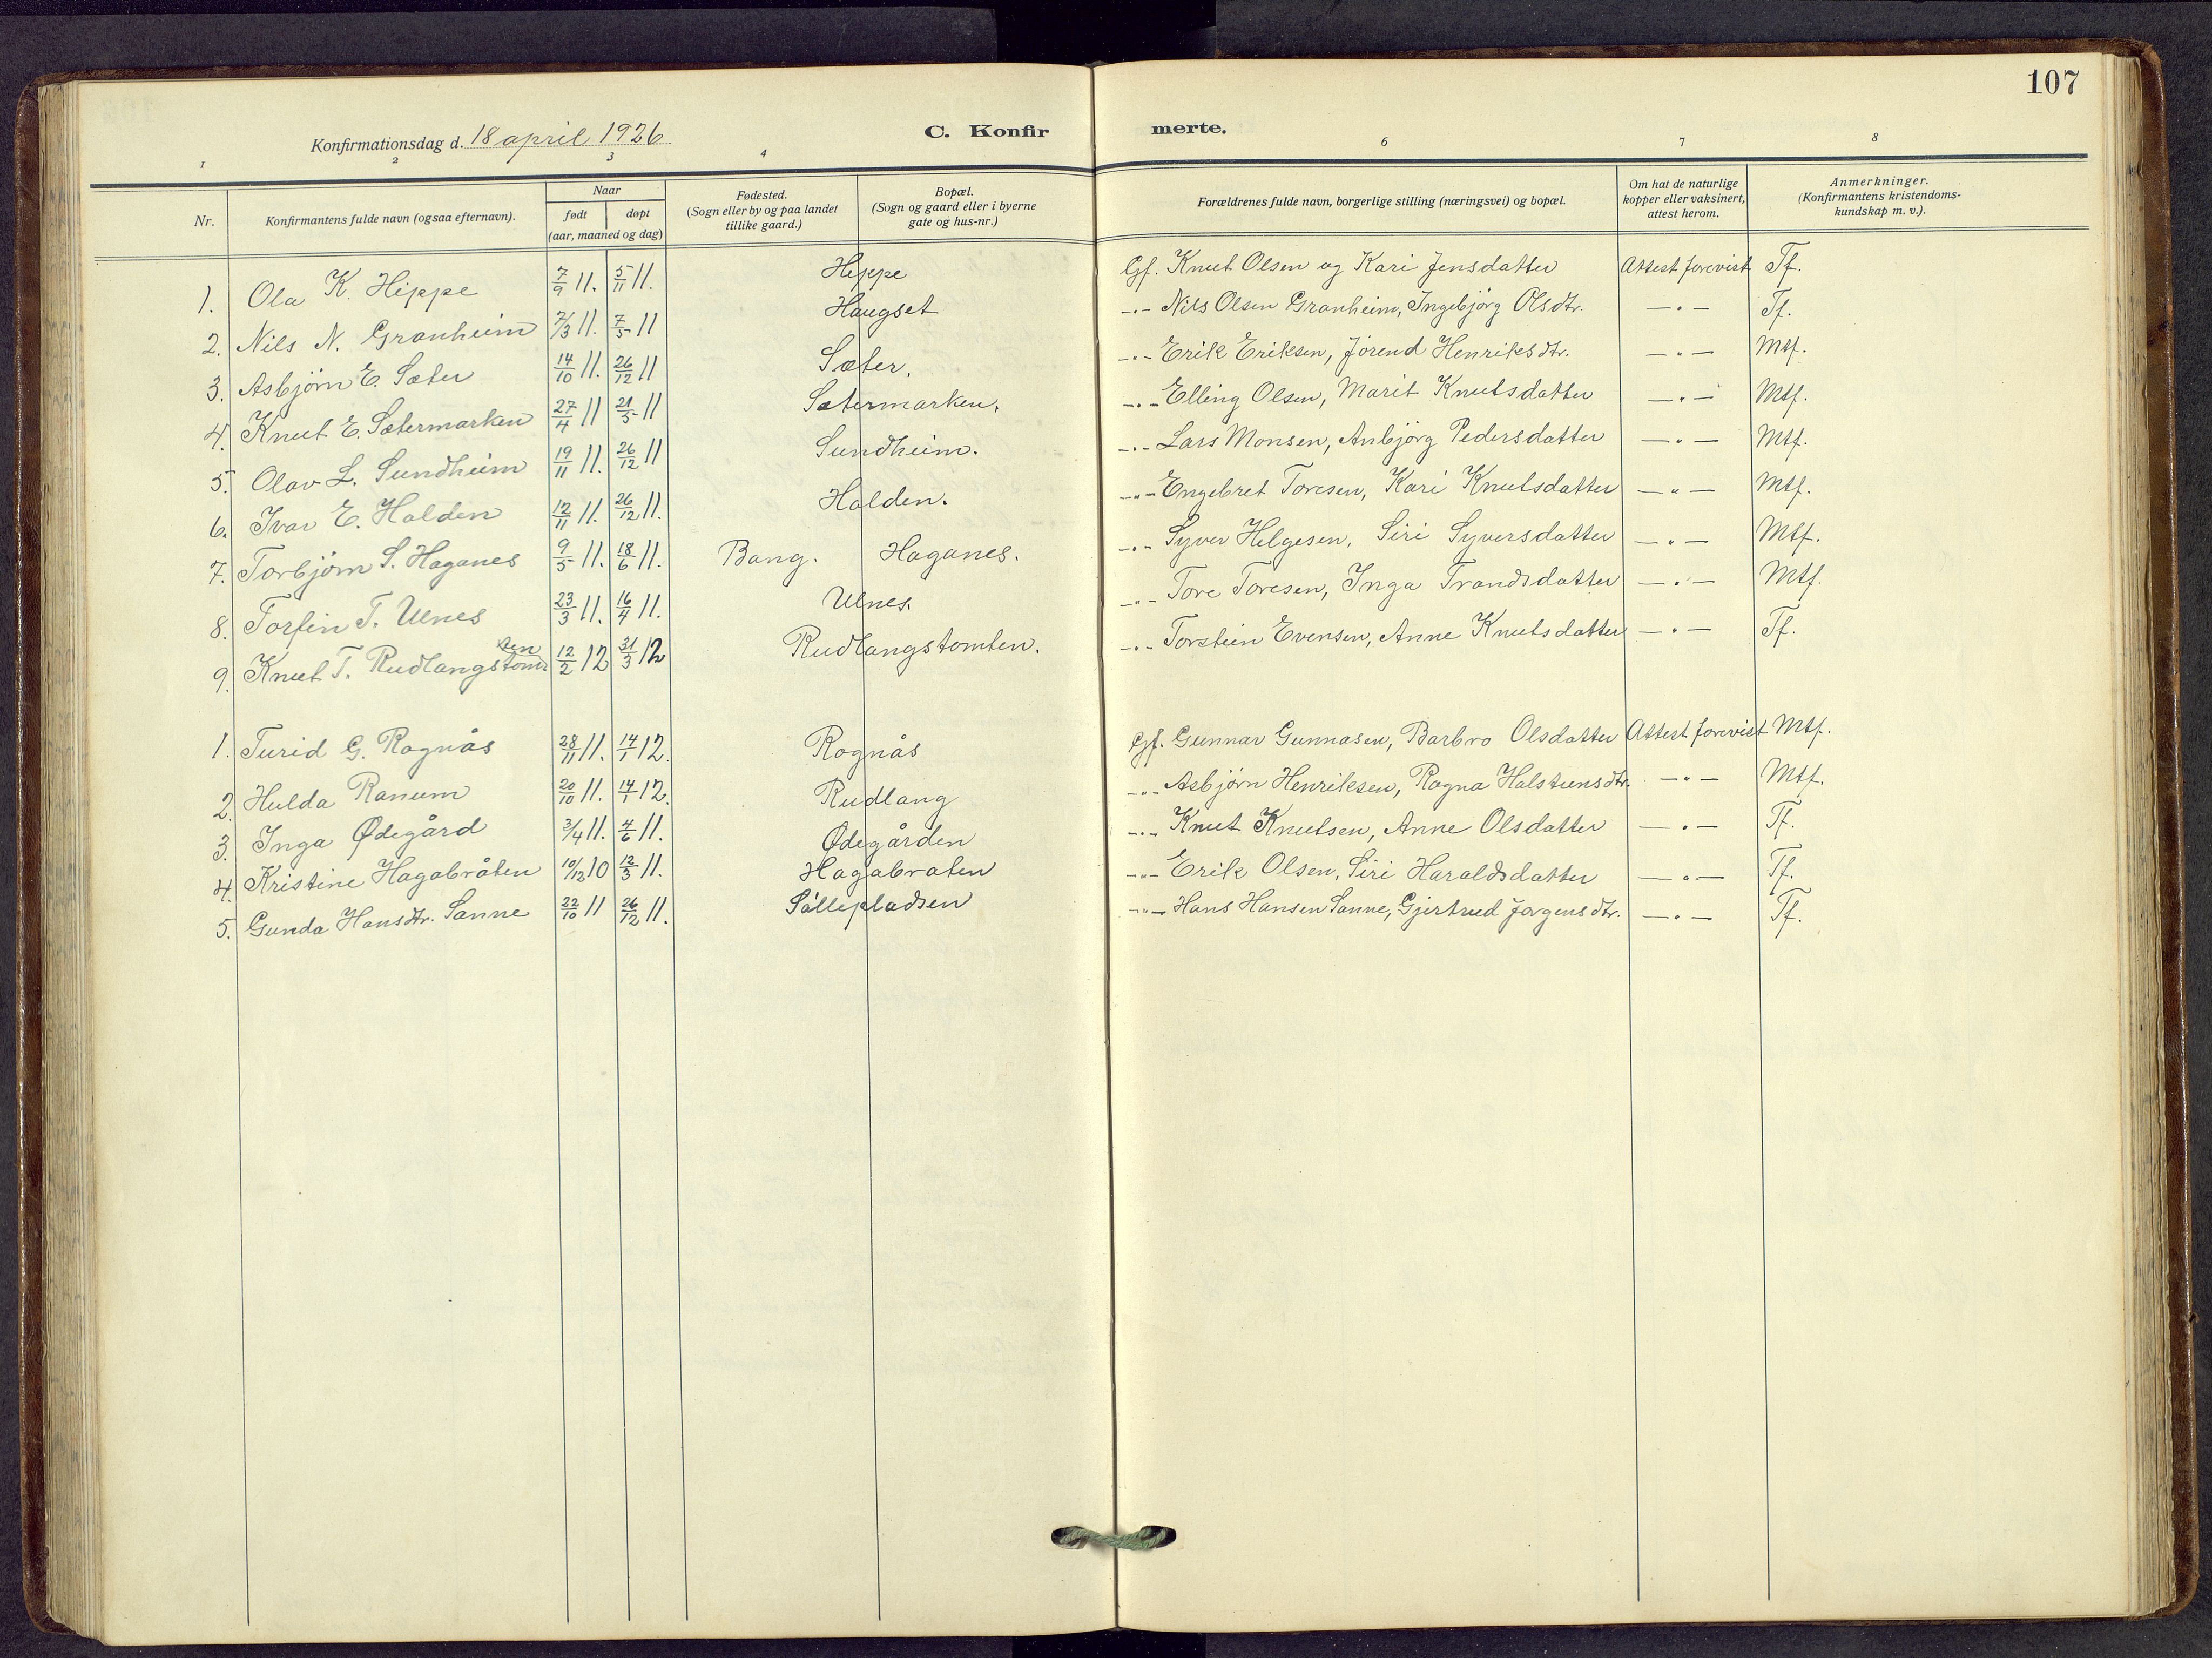 107
Konfirmationsdag d. 18 april 1926
C. Konfirmerte.
1 2 3 4 6 7 8
Nr. | Konfirmantens fulde navn (ogsaa efternavn). | Naar født | døpt (aar, maaned og dag) | Fødested. (Sogn eller by og paa landet tillike gaard.) | Bopæl. (Sogn og gaard eller i byerne gate og hus-nr.) | Forældrenes fulde navn, borgerlige stilling (næringsvei) og bopæl. | Om hat de naturlige kopper eller vaksinert, attest herom. | Anmerkninger. (Konfirmantens kristendoms-kundskap m. v.).
1. Ola K. Hippe 7/9 11. 5/11 11. Hippe Gf. Knut Olsen og Kari Jensdatter Attest forevist Tf.
2. Nils N. Granheim 7/3 11. 7/5 11 Haugset -"- Nils Olsen Granheim, Ingebjörg Olsdtr. -"- Tf.
3. Asbjörn E. Sæter 14/10 11. 26/12 11 Sæter. -"- Erik Eriksen, Jörend Henriksdtr. -"- Mtf.
4. Knut E. Sætermarken 27/4 11 21/5 11 Sætermarken. -"- Elling Olsen, Marit Knutsdatter -"- Mtf.
5. Olav L. Sundheim 19/11 11. 26/12 11 Sundheim. -"- Lars Monsen, Anbjörg Pedersdatter -"- Mtf.
6. Ivar E. Halden 12/11 11. 26/12 11. Halden. -"- Engebret Toresen, Kari Knutsdatter -"- Mtf.
7. Torbjörn S. Haganes 9/5 11. 18/6 11. Bang. Haganes. -"- Syver Helgesen, Siri Syversdatter -"- Mtf.
8. Torfin T. Ulnes 23/3 11. 16/4 11. Ulnes. -"- Tore Toresen, Inga Trandsdatter -"- Mtf.
9. Knut T. Rudlangstomten 12/2 12 31/3 12 Rudlangstomten. -"- Torstein Evensen, Anne Knutsdatter -"- Tf.
1. Turid G. Rognås 28/11 11. 14/1 12. Rognås Gf. Gunnar Gunnasen, Barbro Olsdatter Attest forevist Mtf.
2. Hulda Ranum 20/10 11. 14/1 12. Rudlang -"- Asbjörn Henriksen, Ragna Halstensdtr. -"- Mtf.
3. Inga Ødegård 3/4 11. 4/6 11. Ødegården -"- Knut Knutsen, Anne Olsdatter -"- Tf.
4. Kristine Hagabråten 10/12 10 12/3 11. Hagabraten -"- Erik Olsen, Siri Haraldsdatter -"- Tf.
5. Gunda Hansdtr. Sanne 22/10 11 26/12 11. Sällepladsen -"- Hans Hansen Sanne, Gjertrud Jørgensdtr. -"- Tf.